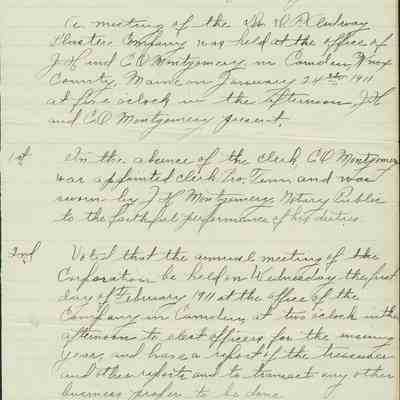 A meeting of the
Plaster Company was held at the office of
J.H. and C.O. Montgomery in Camden, Knox
County, Maine on January 24th 1911
at five o'clock in the afternoon, J.H.
and C.O. Montgomery present.
1st In the absence of the clerk C.O. Montgomery
was appointed clerk Pro. Tem. and was
sworn by J.H. Montgomery, Notary Public
to the faithful performance of his duties.
2nd Voted that the annual meeting of the
Corporation be held on Wednesday the first
day of February 1911 at the office of the
Company in Camden, at two o'clock in the
afternoon to elect officers for the ensuing
year, and have a report of the treasurer
and other reports and to transact any other
business proper to be done